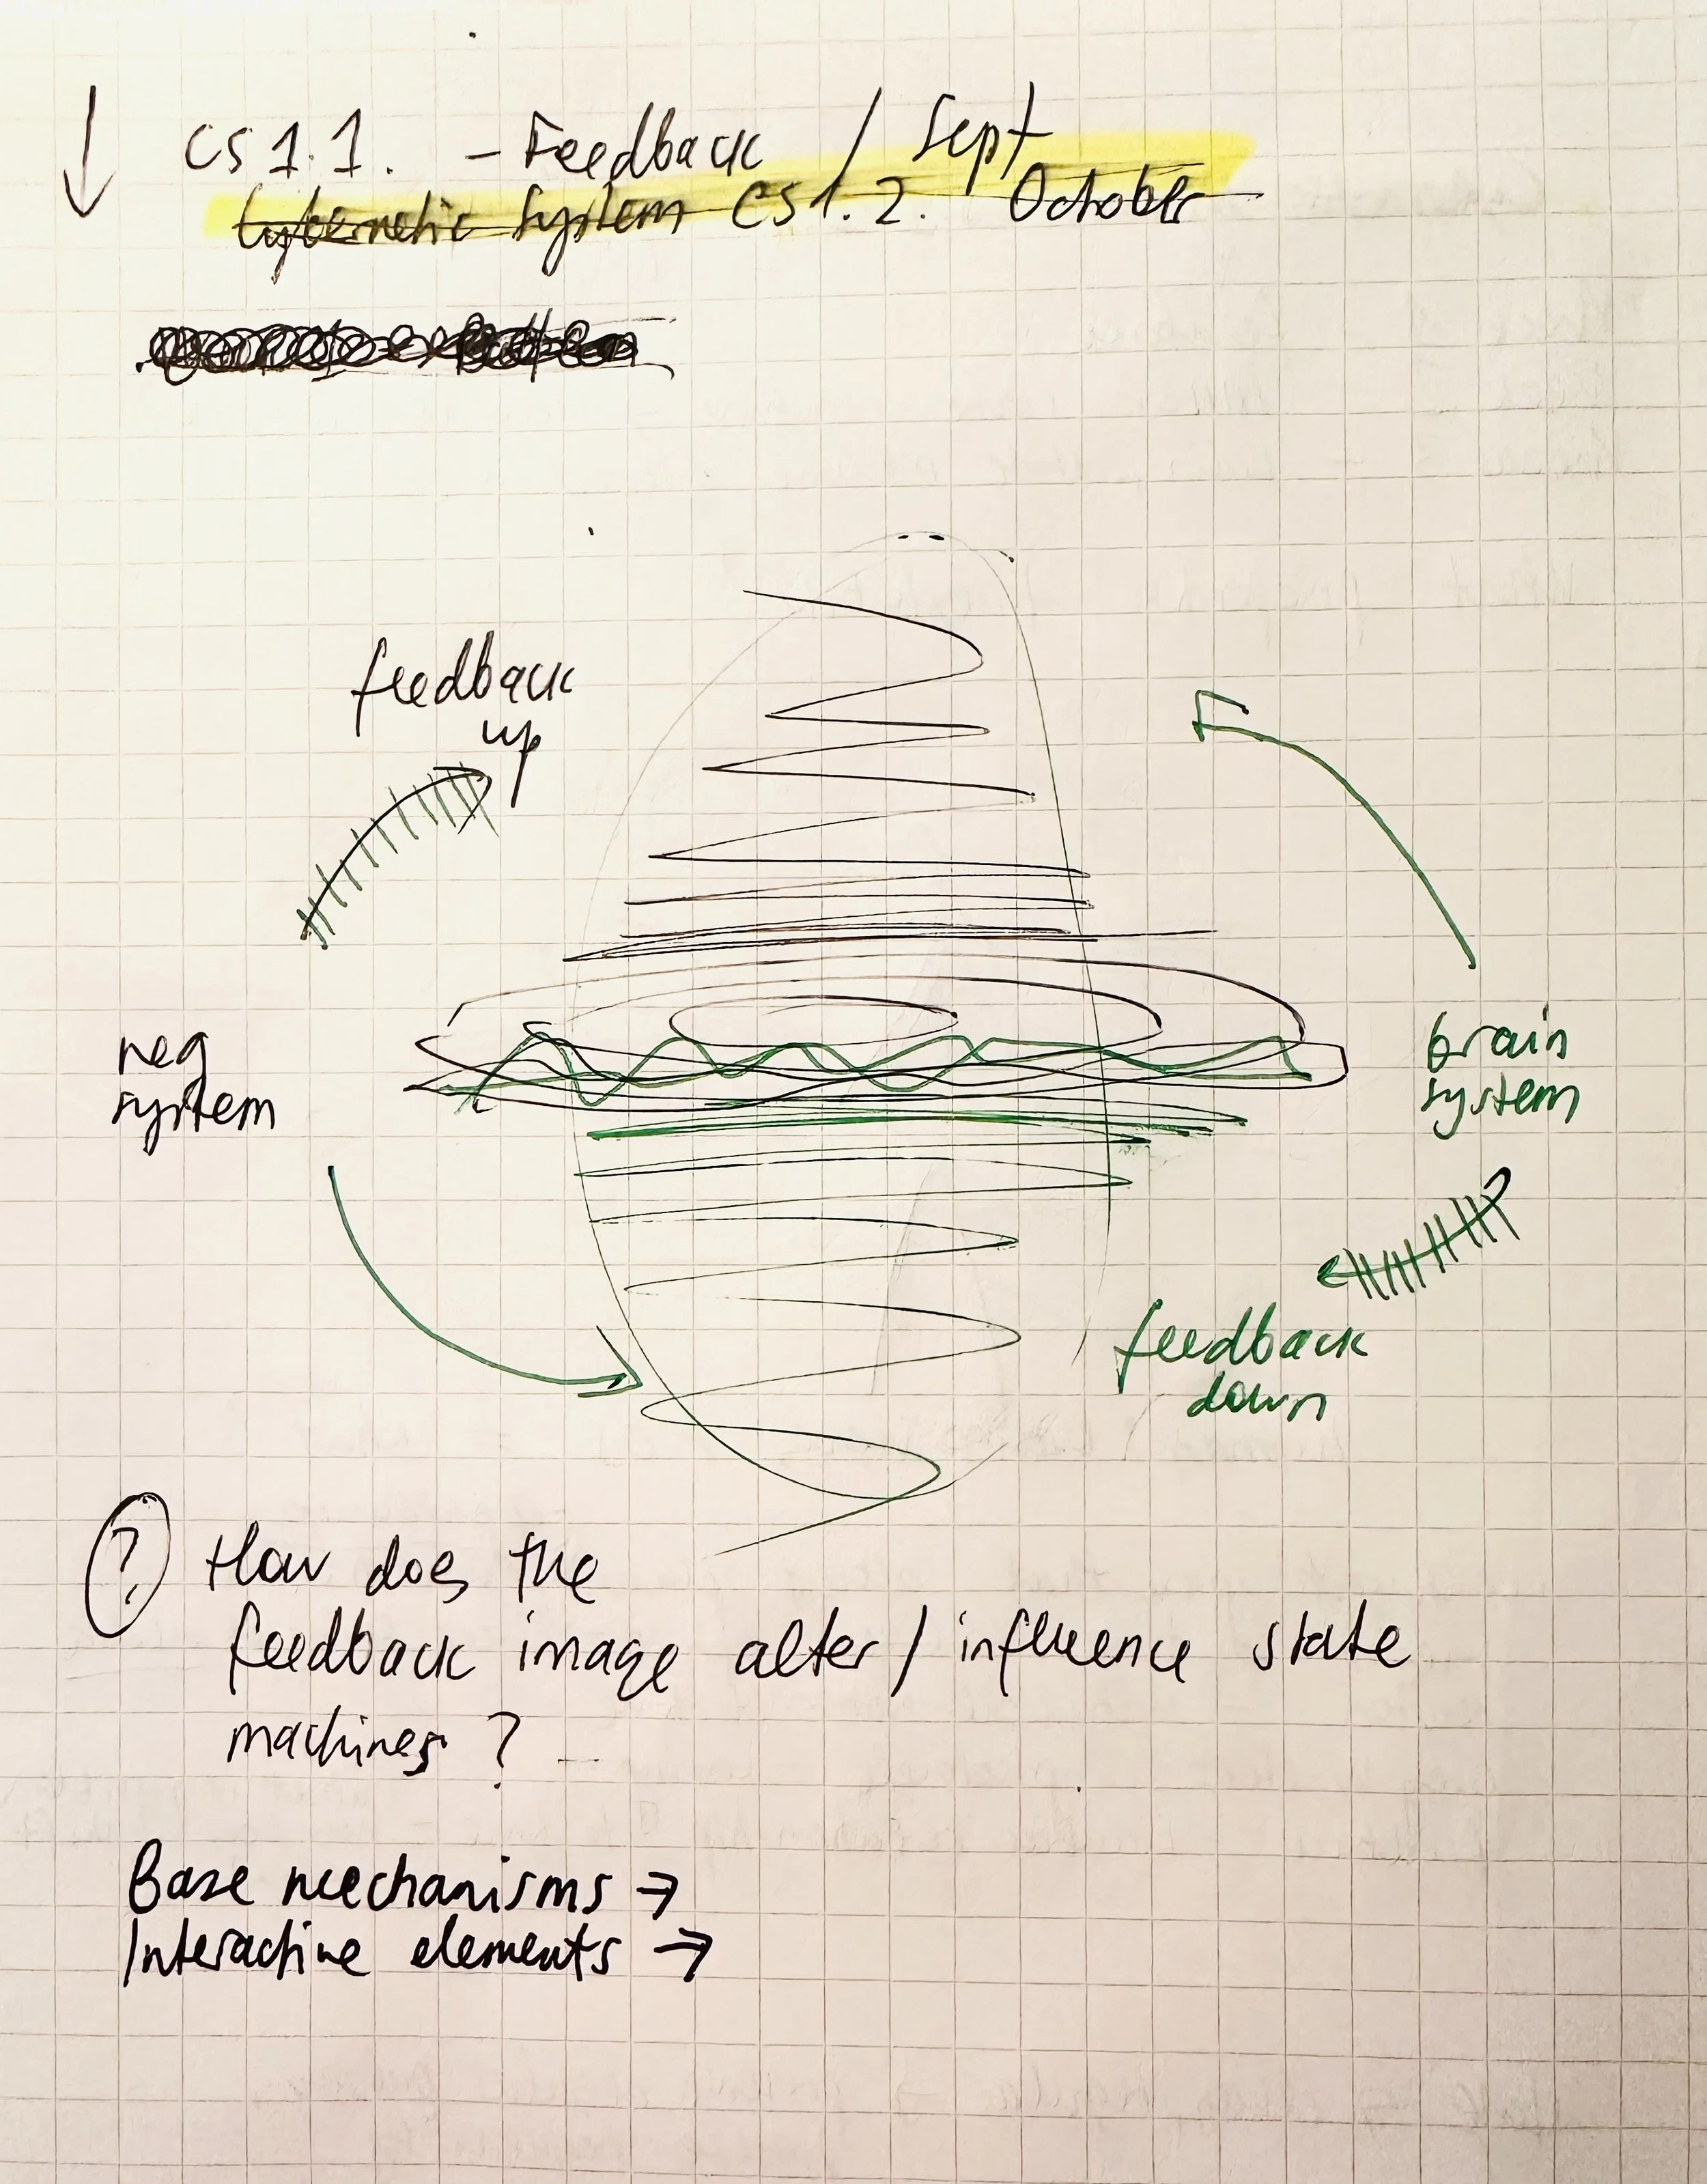 CS 1.1. - Feedback / Sept
Cybernetic System CS 1.2. October
feedback
up
neg
system
brain
system
feedback
down
? How does the
feedback image alter / influence state
machines ?
Base mechanisms →
Interactive elements →